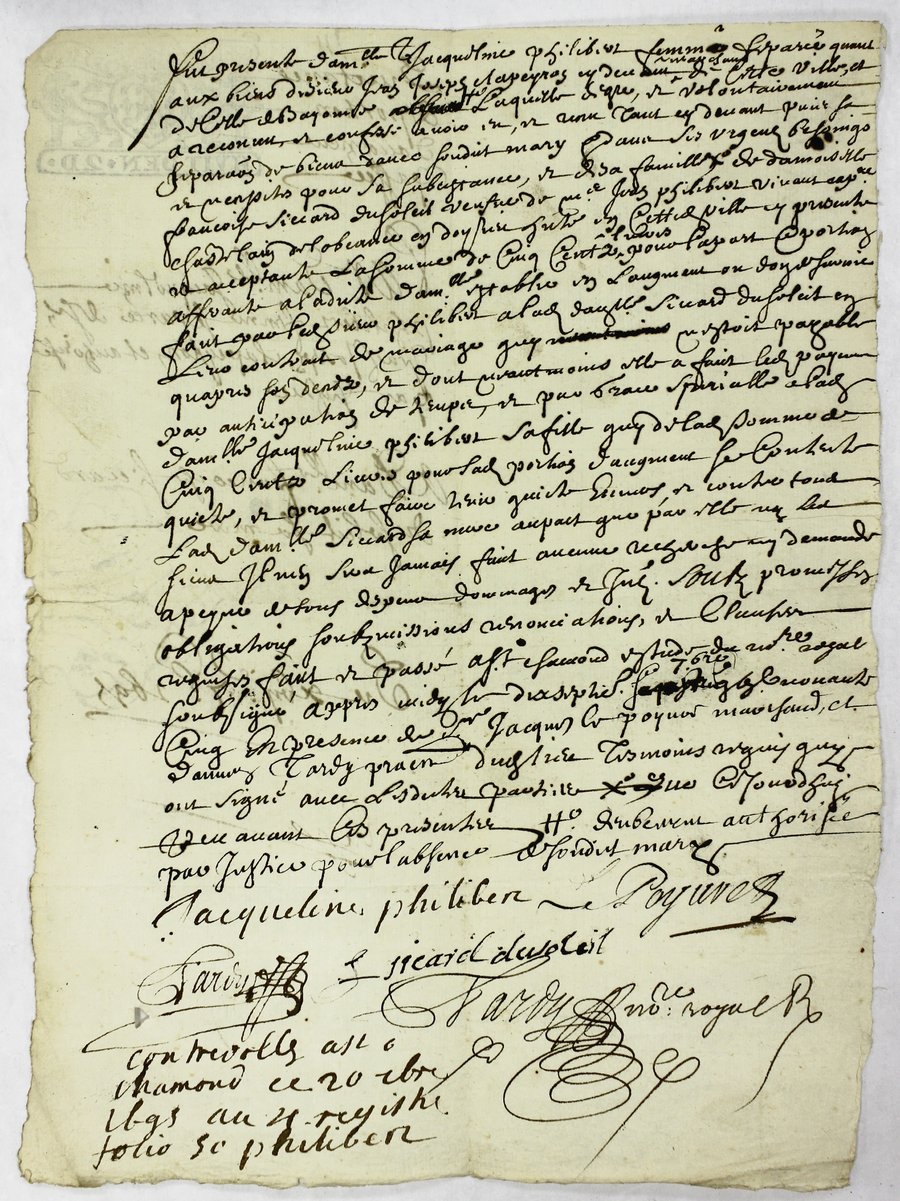 Fut presente dam.lle Jacqueline philibert femme separée quant
aux biens de sieur Jean Lapeyros cy devant de cette ville, et
de celle de Bayonne Laquelle degre, et volontairement
a reconnu, et confessé avoir eu, et receu tant cy devant puis sa
separaõn de biens davec sondit mary pour ses urgens besoings
et necessites pour sa subsistance, et de sa famille de damoiselle
francoise siccard dusoleil veufve de m.e Jean philibert vivant
chastelain en cette ville cy presente
et acceptante La somme de Cinq Centz Livres, pour la part et portion
afferante a ladite dam.lle establie en Laugment ou don de survie
fait par led sieur philibert a lad dam.lle siccard dusoleil en
Leur contrait de mariage quy nestoit payable
quapres son decedz, et dont neantmoins elle a fait led payem
par anticipation de temps, et par grace spetialle a lad
dam.lle Jacqueline philibert sa fille quy de lad somme de
Cinq Centz Livres pour lad portion daugment se Contente
quicte, et promet faire tenir quicte Envers, et contre tous
Lad dam.lle Siccard sa mere aupact que par elle ny les
siens Il nen sera Jamais fait aucune recherche ny demande
apeyne de tous despens dommages et Jnt. Soubz promesses
obligations soubzmissions renonciations, et Clauses
requises fait et passé a S.t chamond estude du no.re royal
soubsigné appres midy le dixseptie. 7bre nonante
Cinq En presence de Jacques le poyure marchand, et
Tardy praen tesmoins requis quy
ont signé avec Lesdites parties Ce Jourdhuy
avant Ces presentes deubement authorisée
par Justice pour labsence de sondit mary
Jacqueline philibert Le Poyure
Tardy f sicard dusoleil
Tardy no.re royal R
controllé a st
chamond ce 20 7bre
1695 au 4 registre
folio 50 philibert